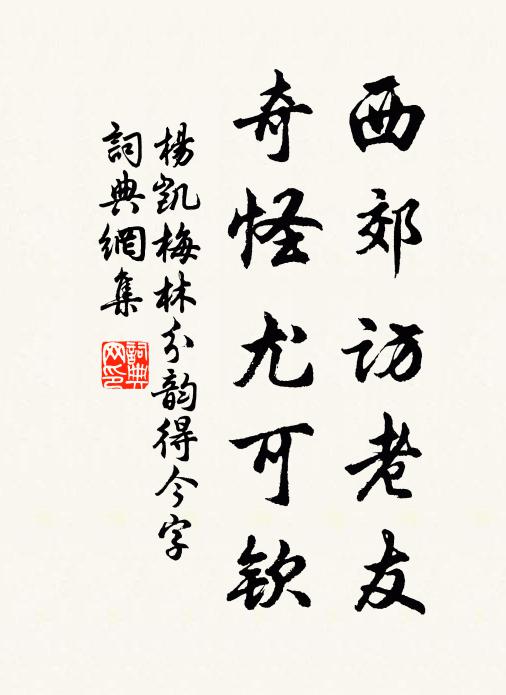 西郊访老友
奇怪尤可钦
楊凯梅林分韵得今字
詞典網集
詞典网印